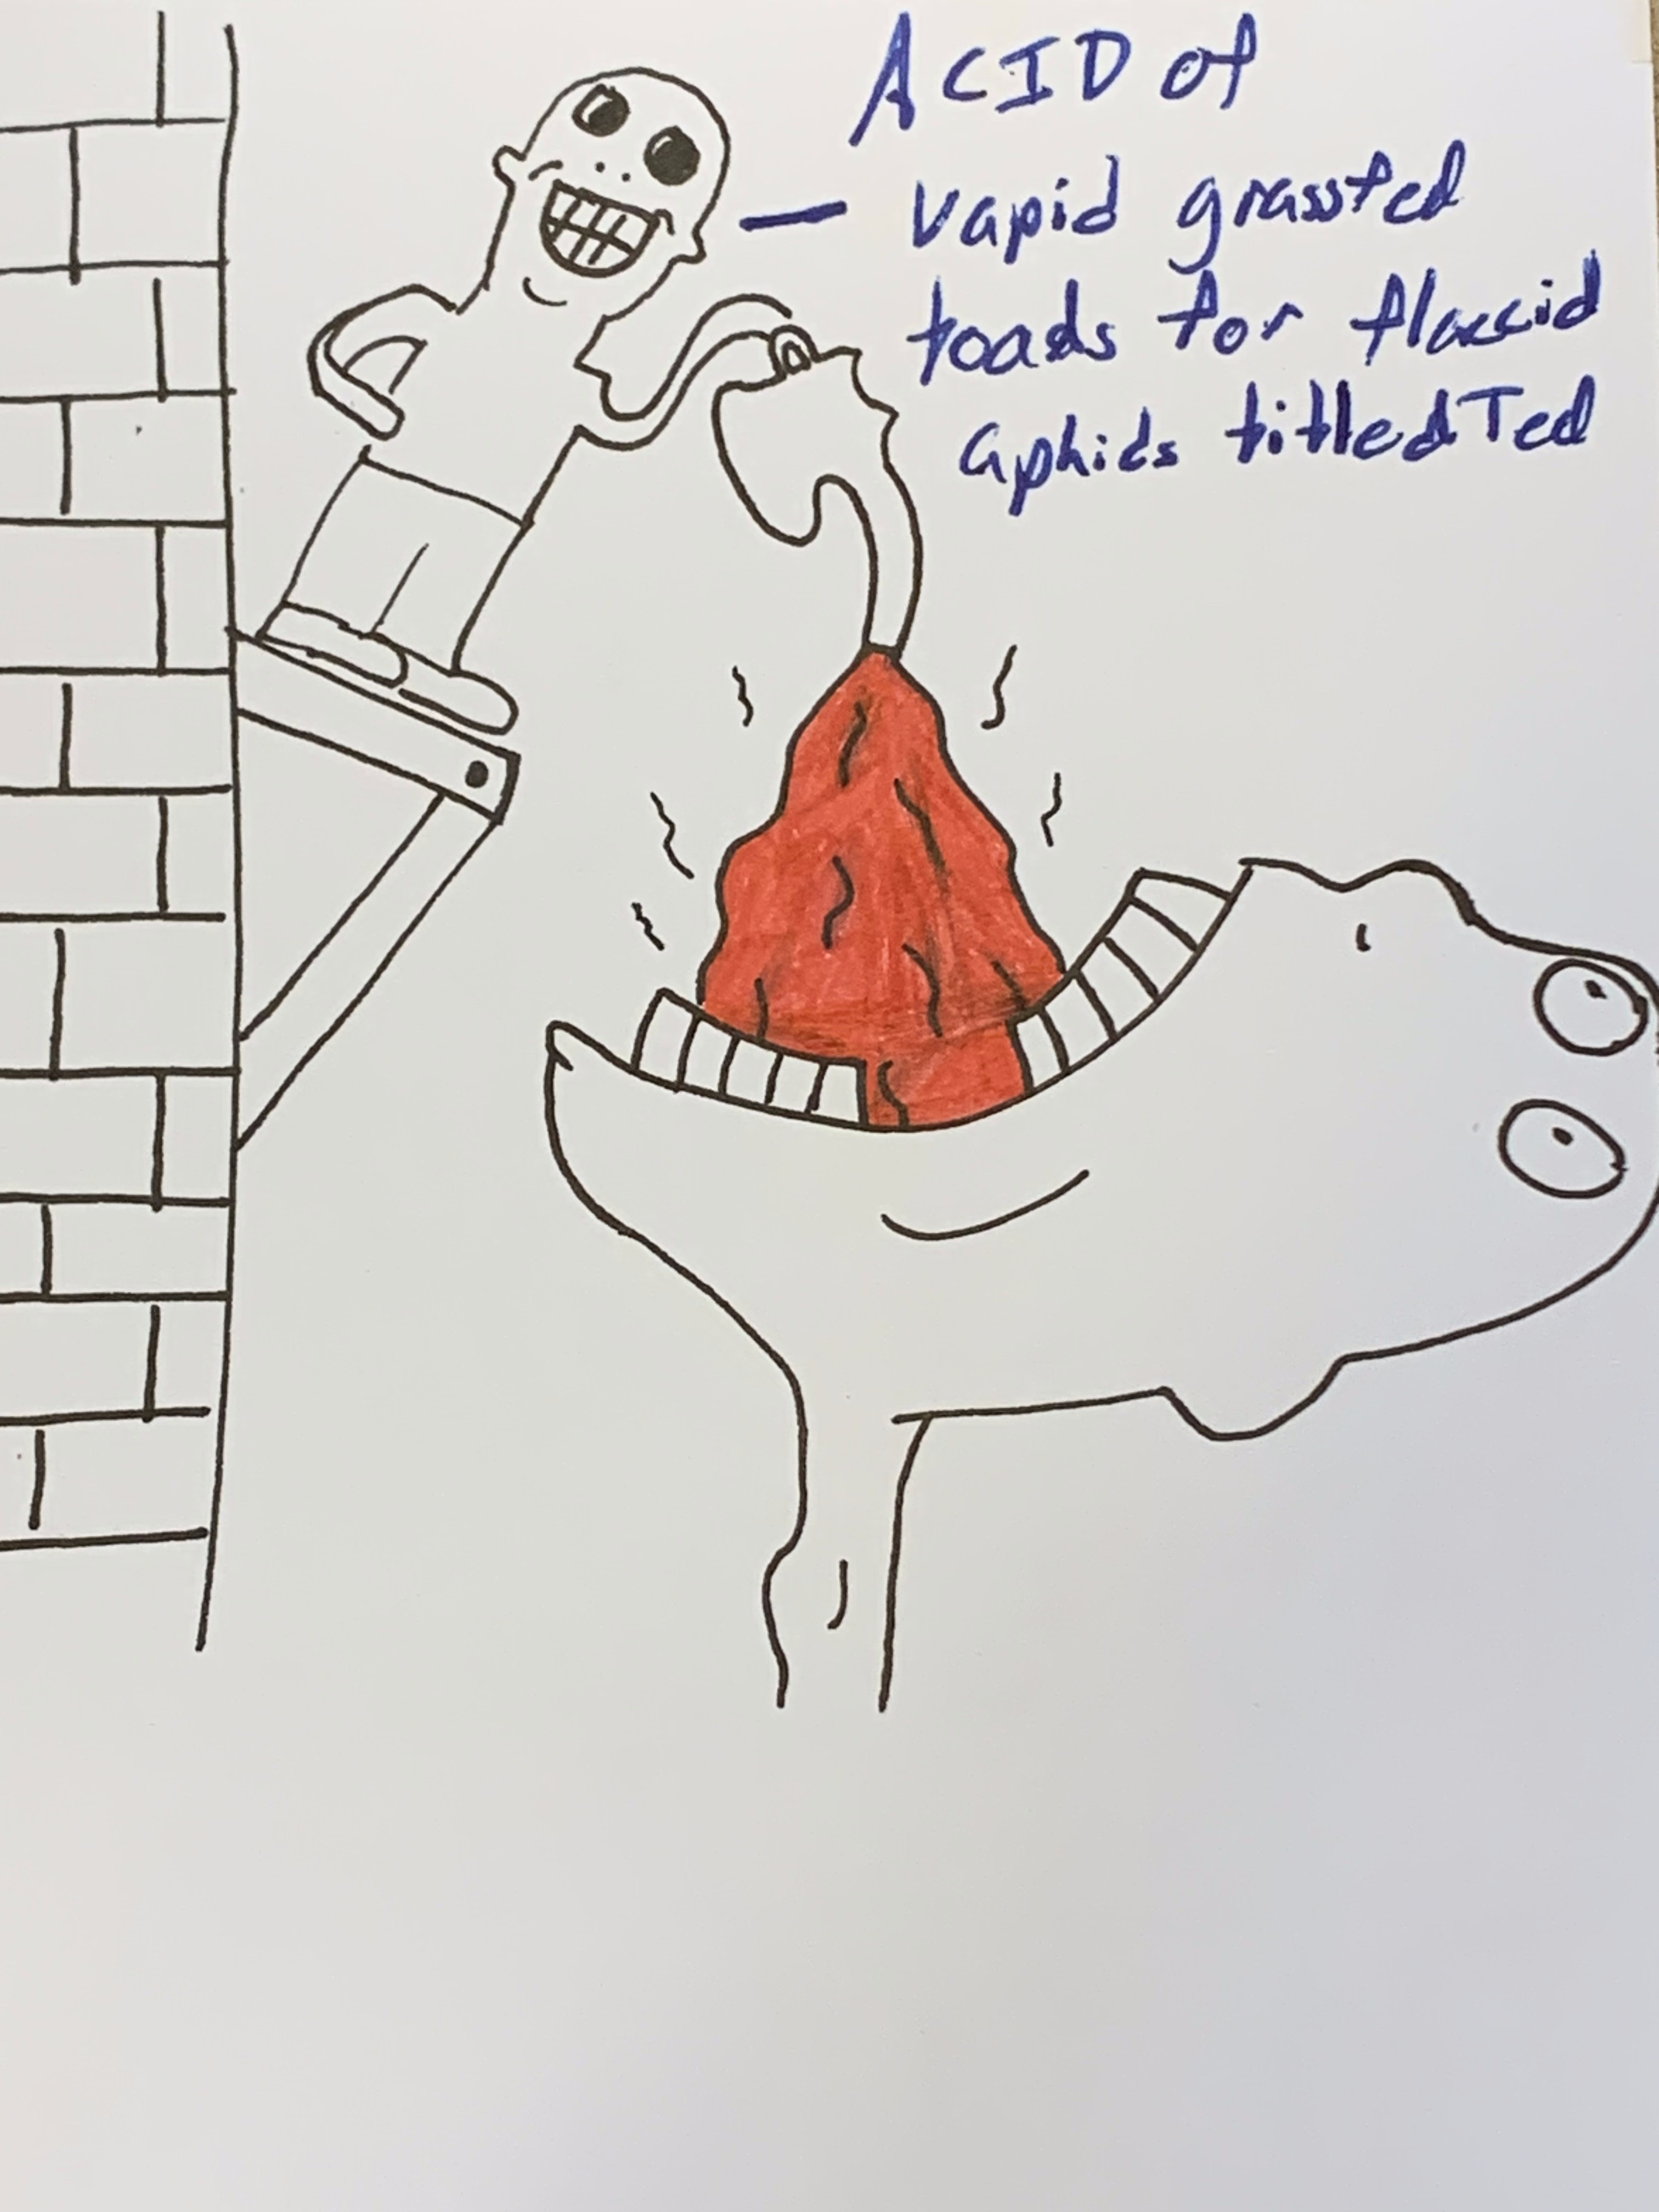 ACID of
— vapid grassted
toads for flaccid
aphids titled Ted